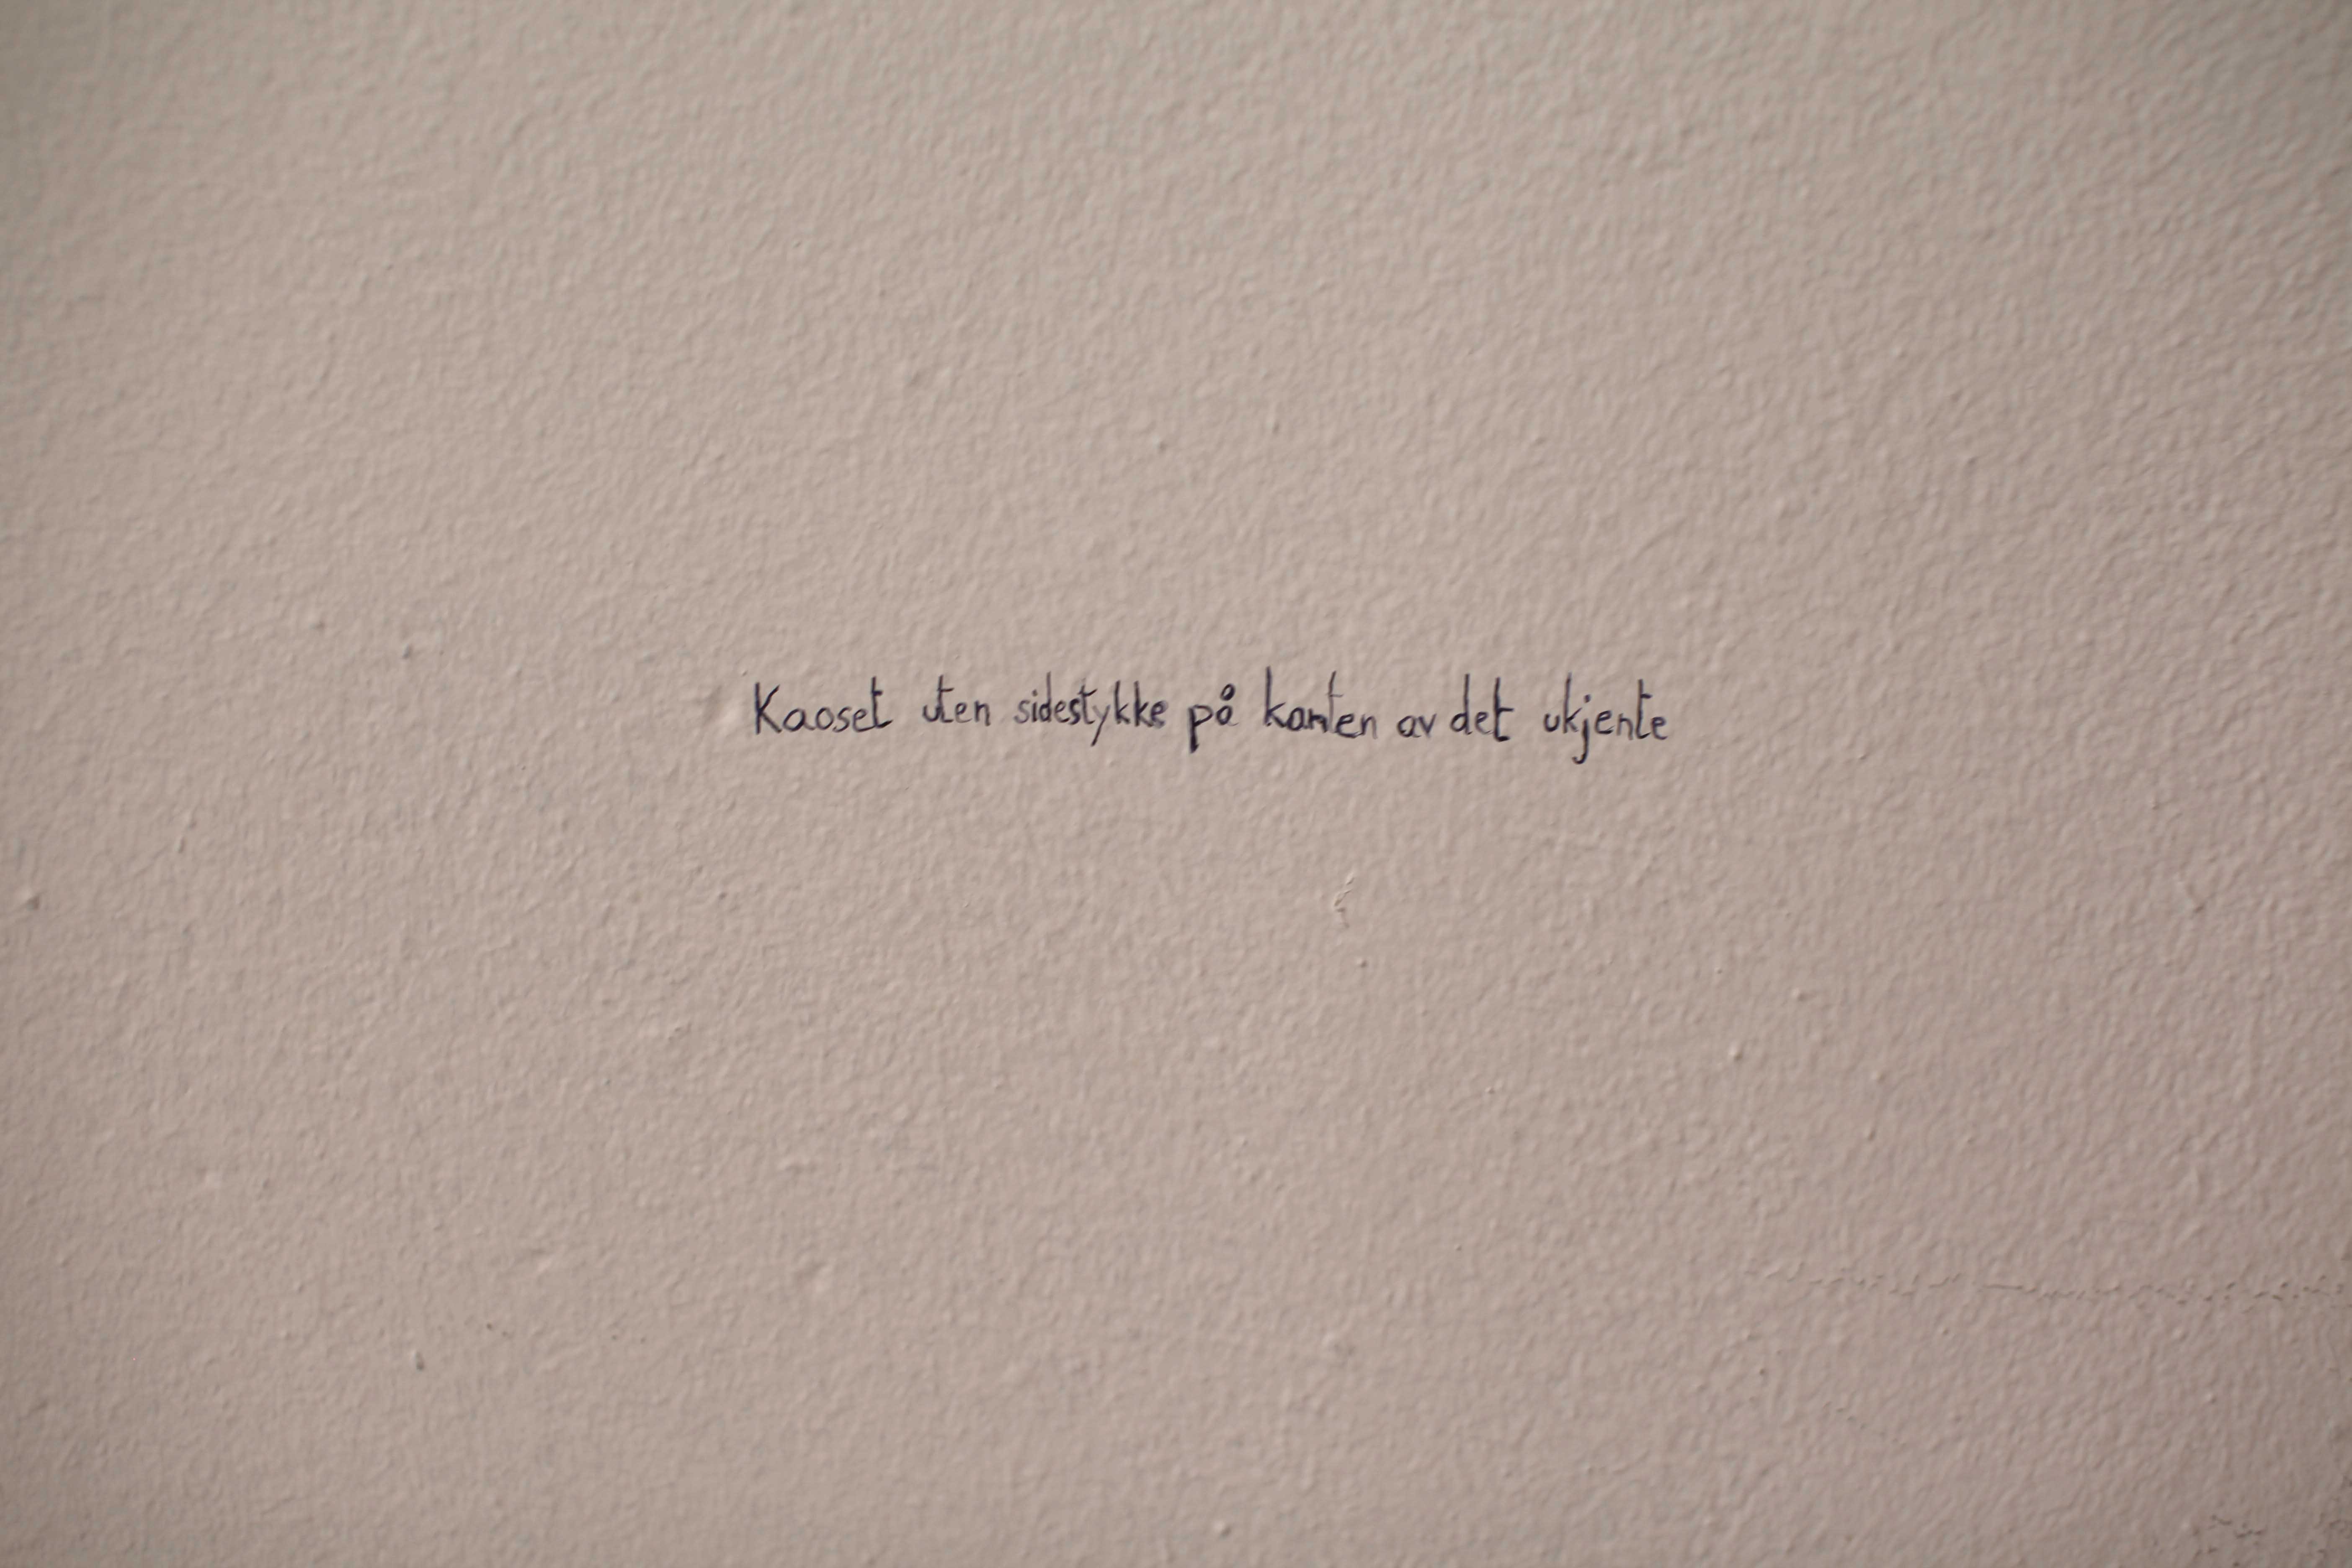 Kaoset uten sidestykke på kanten av det ukjente